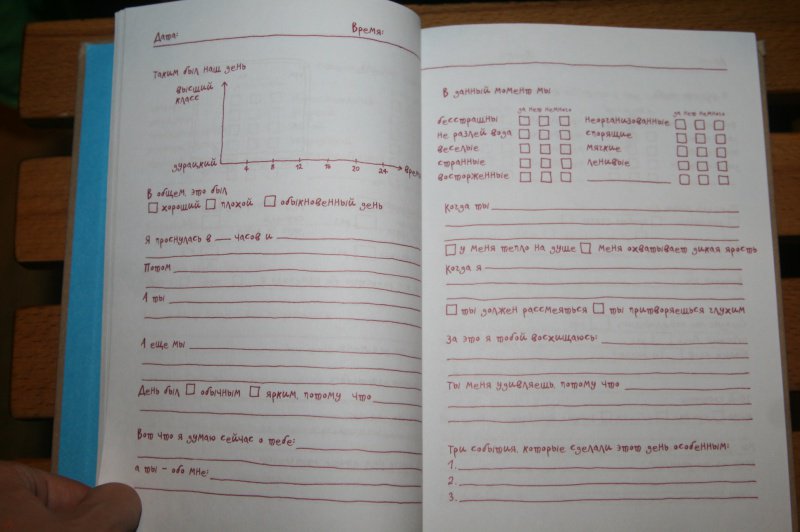 Дата: Время:
Таким был наш день
высший
класс
дурацкий
4 8 12 16 20 24 время
В общем, это был
хороший плохой обыкновенный день
Я проснулась в часов и
Потом
1 ты
1 еще мы
День был обычным ярким, потому что
Вот что я думаю сейчас о тебе:
а ты - обо мне:
В данный момент мы
да нет немного
бесстрашны
не разлей вода
веселые
странные
восторженные
да нет немного
неорганизованные
спорящие
мягкие
ленивые
Когда ты
у меня тепло на душе меня охватывает дикая ярость
Когда я
ты должен рассмеяться ты притворяешься глухим
За это я тобой восхищаюсь:
Ты меня удивляешь, потому что
Три события, которые сделали этот день особенным:
1.
2.
3.